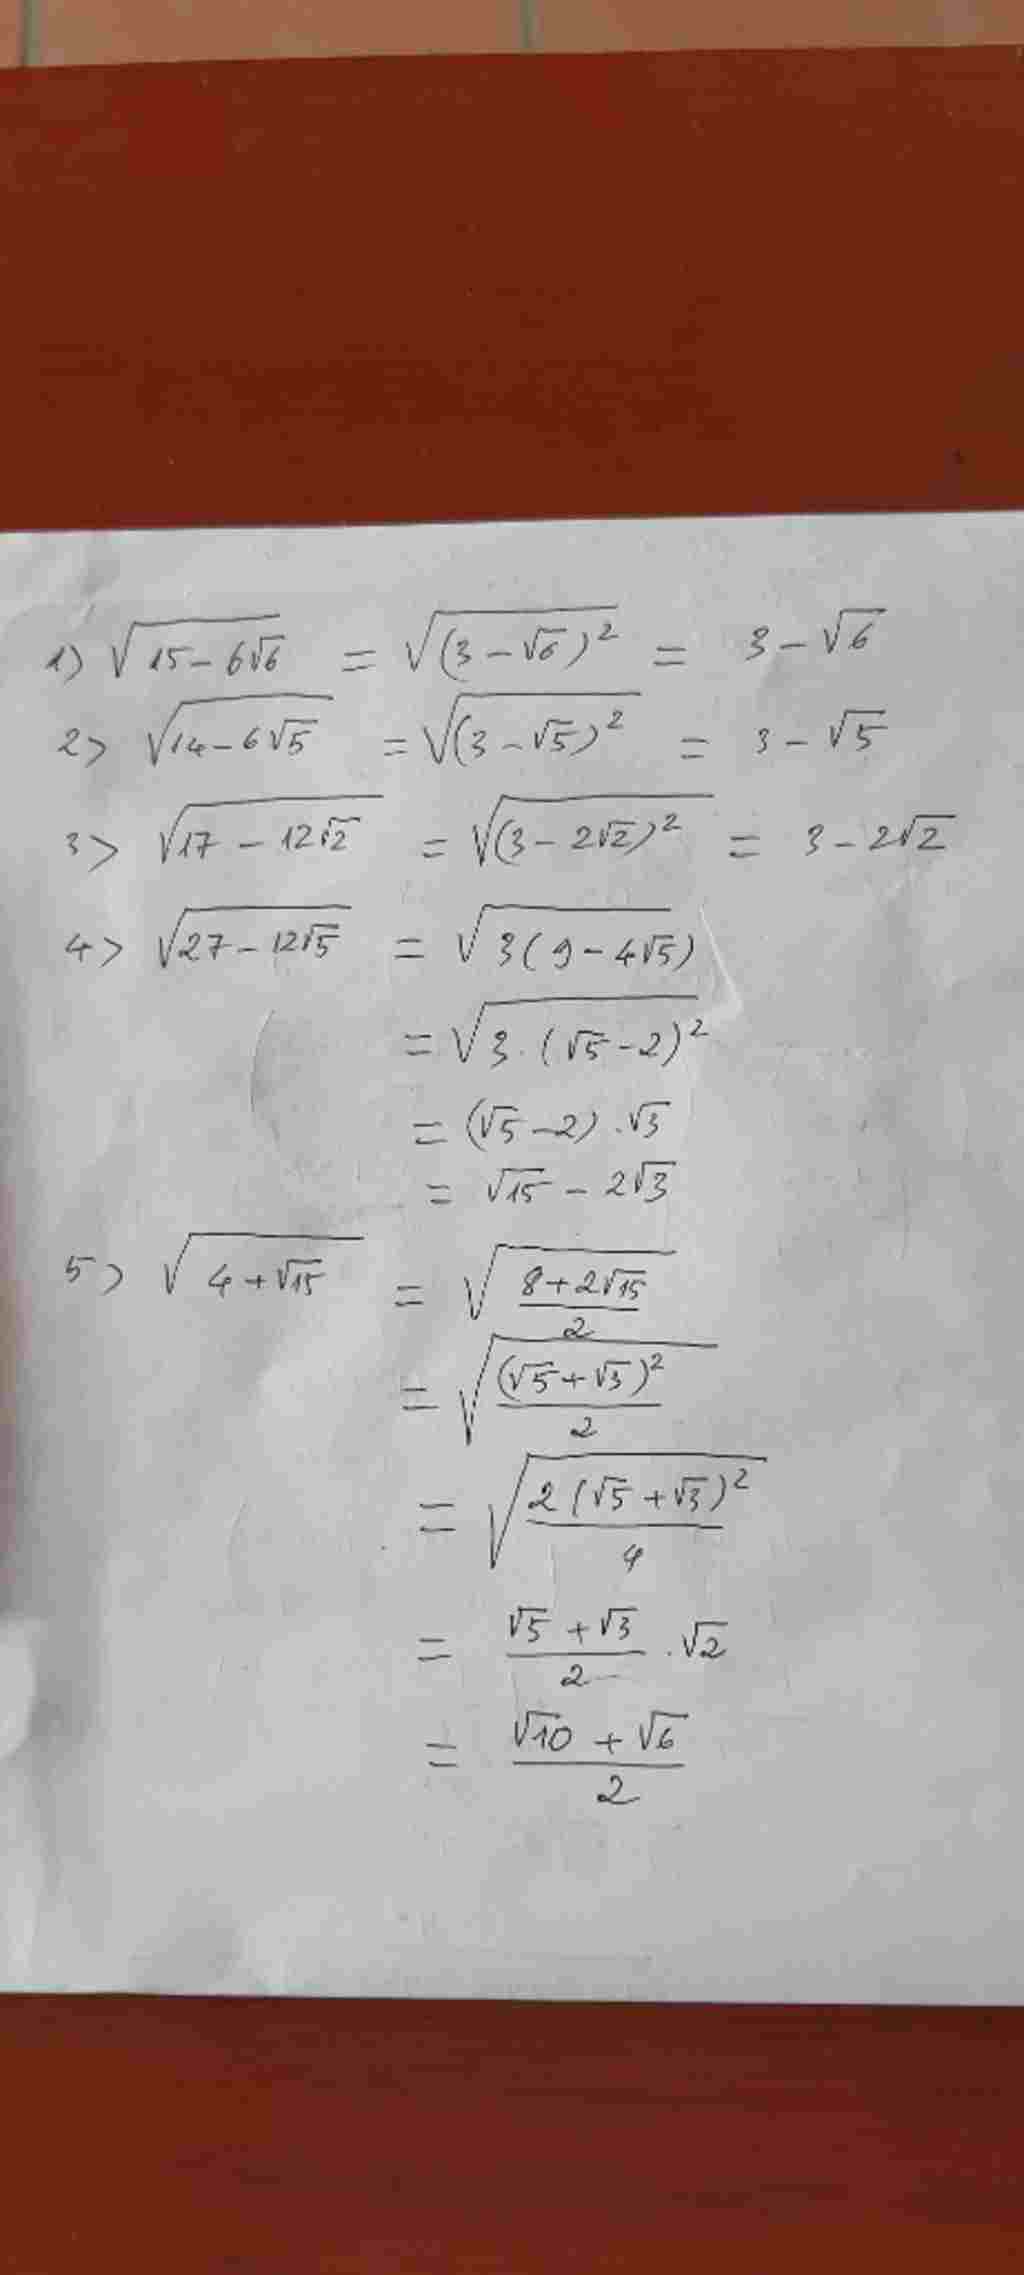 1) √(15-6√6) = √((3-√6)²) = 3-√6
2) √(14-6√5) = √((3-√5)²) = 3-√5
3) √(17-12√2) = √((3-2√2)²) = 3-2√2
4) √(27-12√5) = √(3(9-4√5))
= √(3.(√5-2)²)
= (√5-2).√3
= √15-2√3
5) √(4+√15) = √((8+2√15)/2)
= √((√5+√3)²/2)
= √(2(√5+√3)²/4)
= (√5+√3)/2 .√2
= (√10+√6)/2